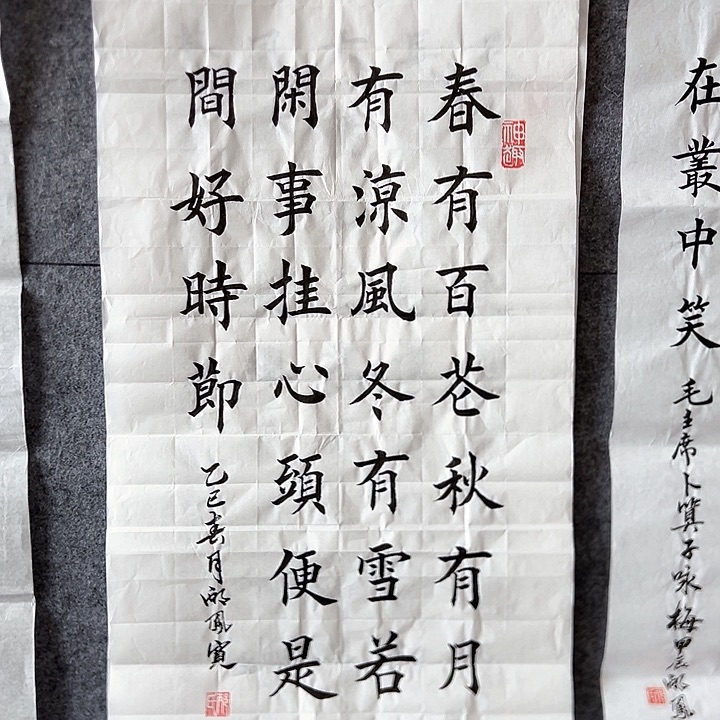 在叢中笑
毛主席卜算子咏梅 甲辰
神趣
春有百花秋有月
有涼風冬有雪若
閑事挂心頭便是
間好時節
乙巳春月 鳳寬